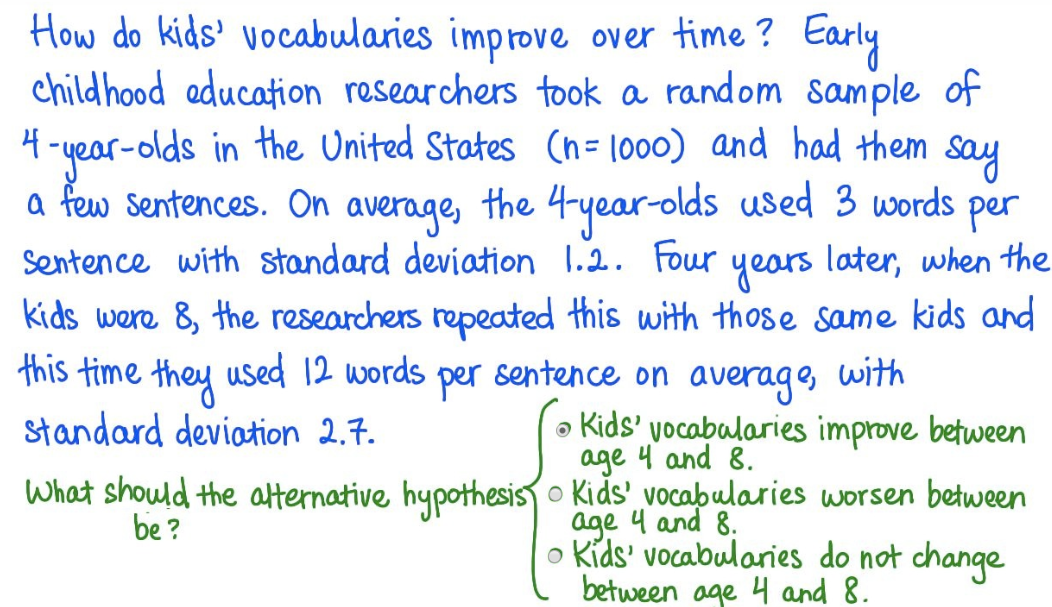 How do kids' vocabularies improve over time? Early
childhood education researchers took a random sample of
4-year-olds in the United States (n=1000) and had them say
a few sentences. On average, the 4-year-olds used 3 words per
sentence with standard deviation 1.2. Four years later, when the
kids were 8, the researchers repeated this with those same kids and
this time they used 12 words per sentence on average, with
standard deviation 2.7.
What should the alternative hypothesis
be?
Kids' vocabularies improve between
age 4 and 8.
Kids' vocabularies worsen between
age 4 and 8.
Kids' vocabularies do not change
between age 4 and 8.